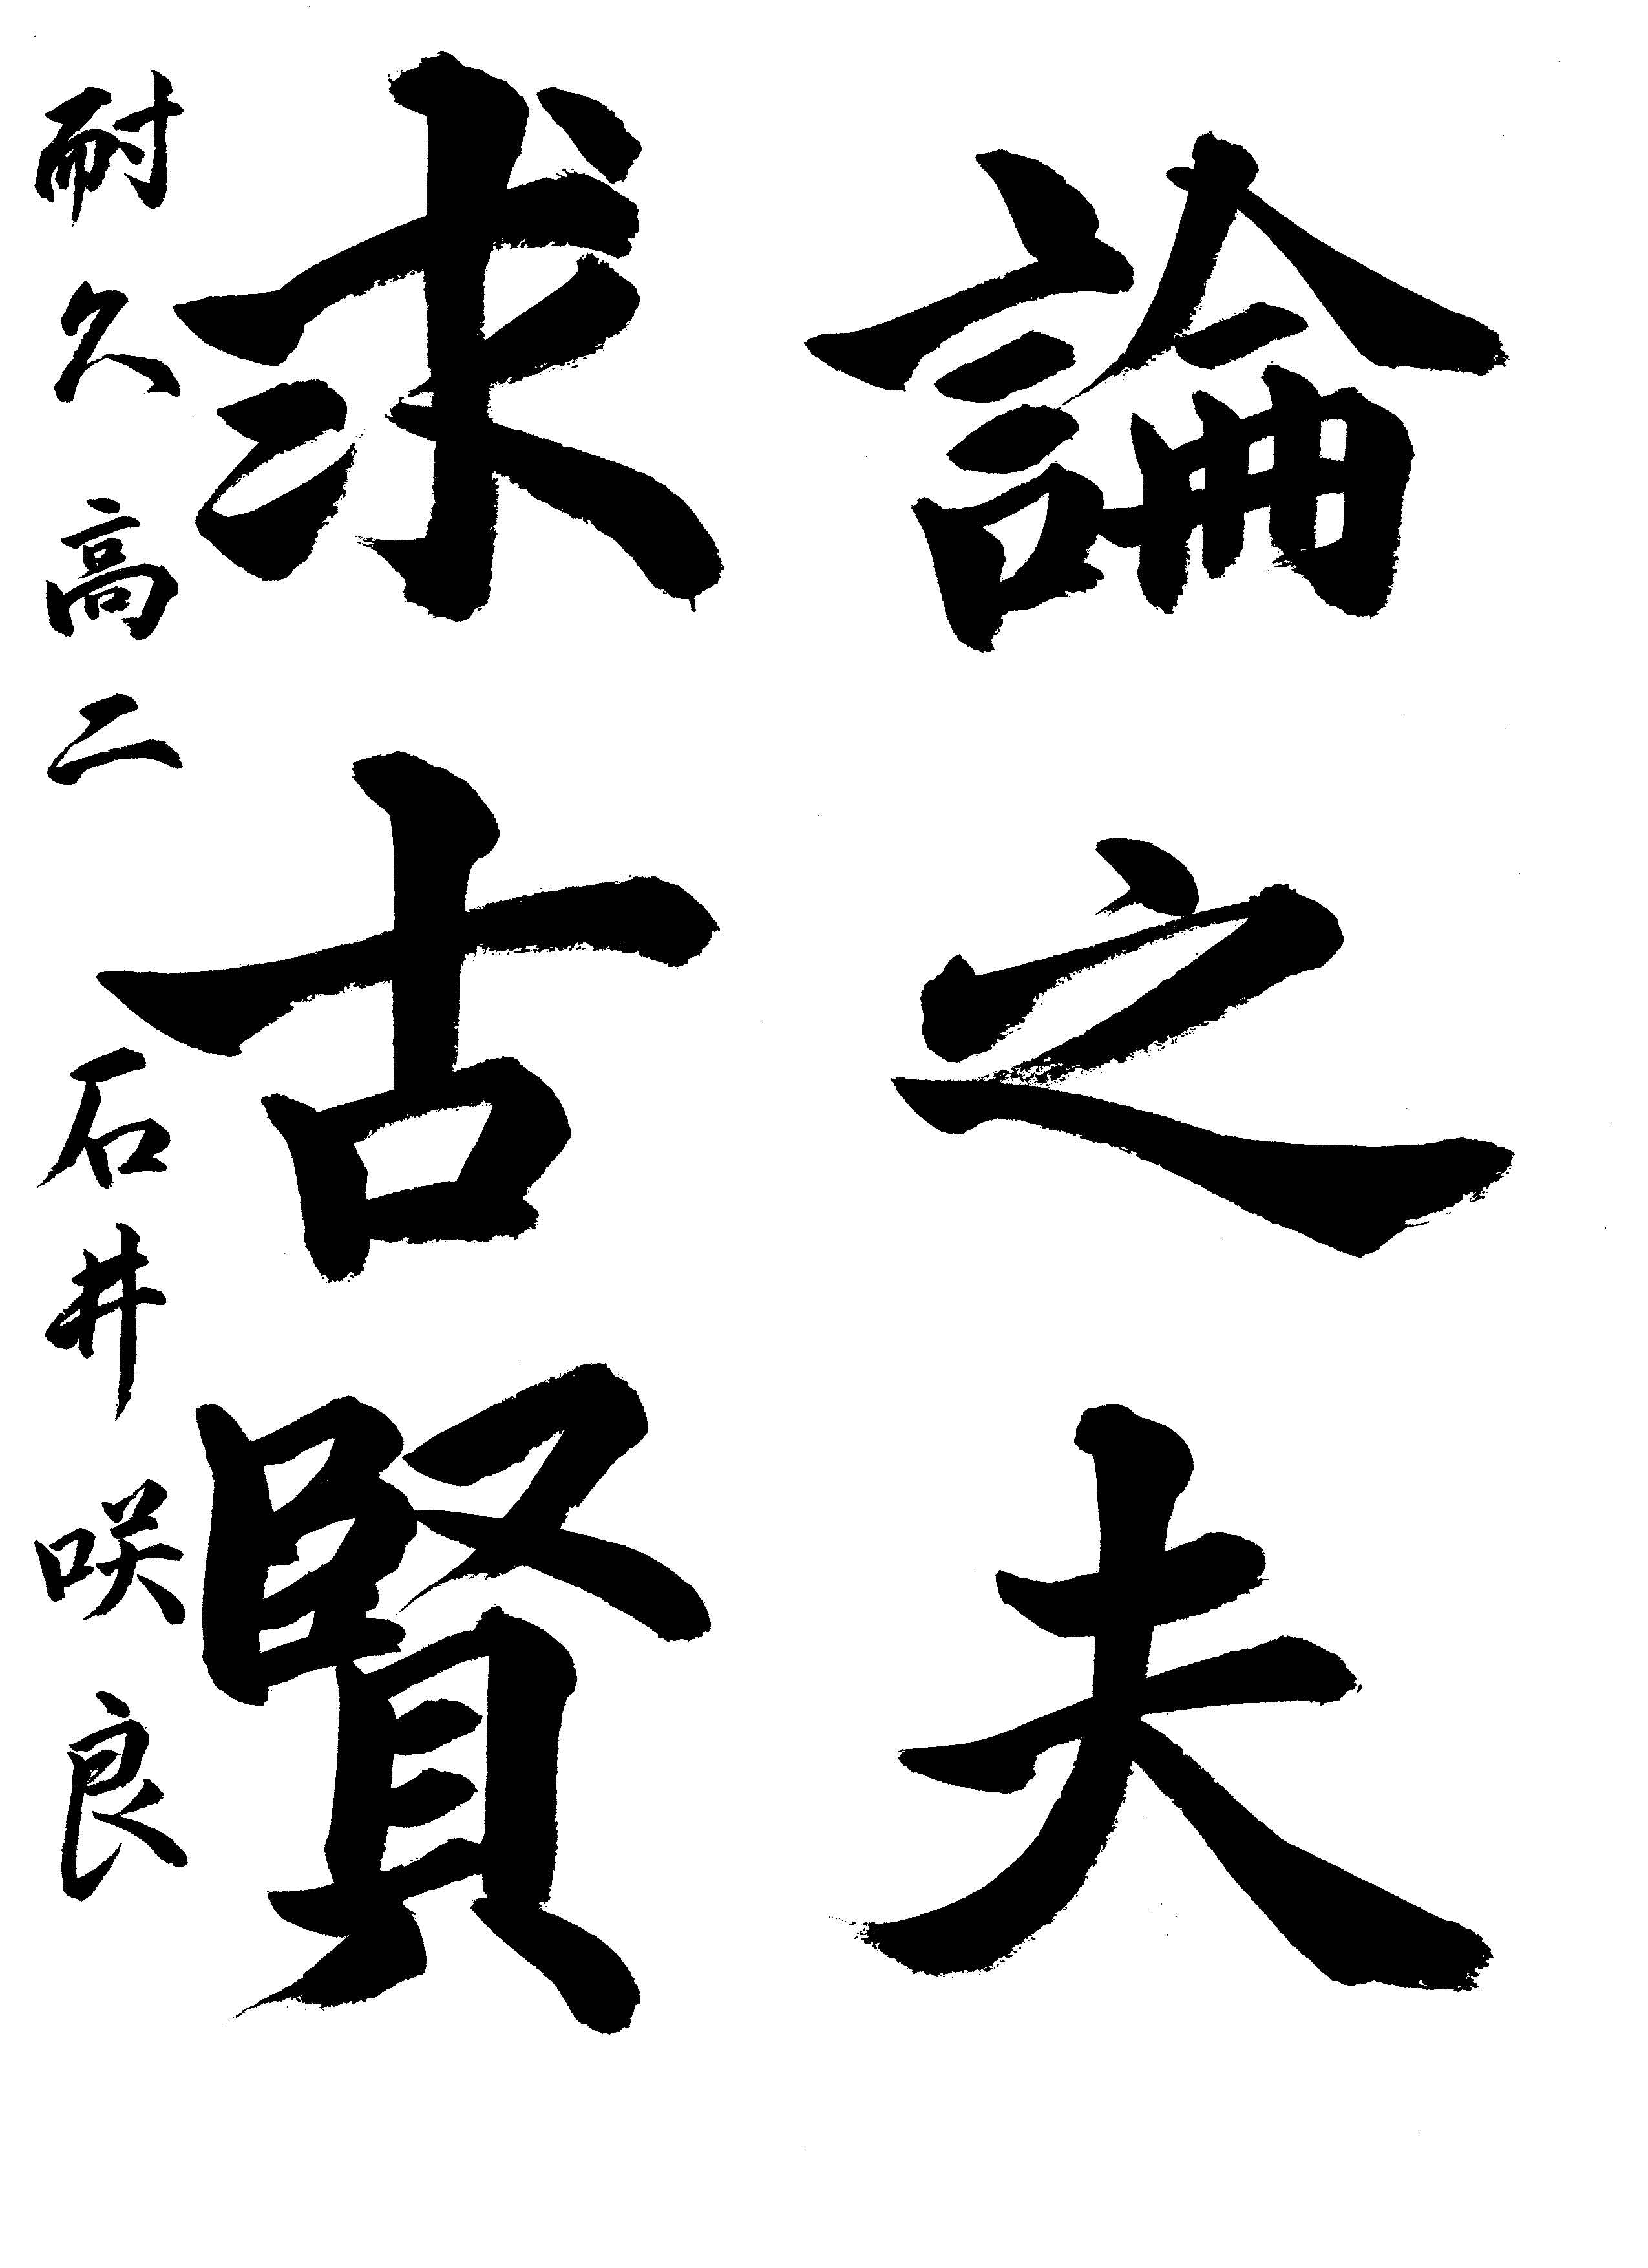 論之夫
求古賢
耐久高二 石井咲良